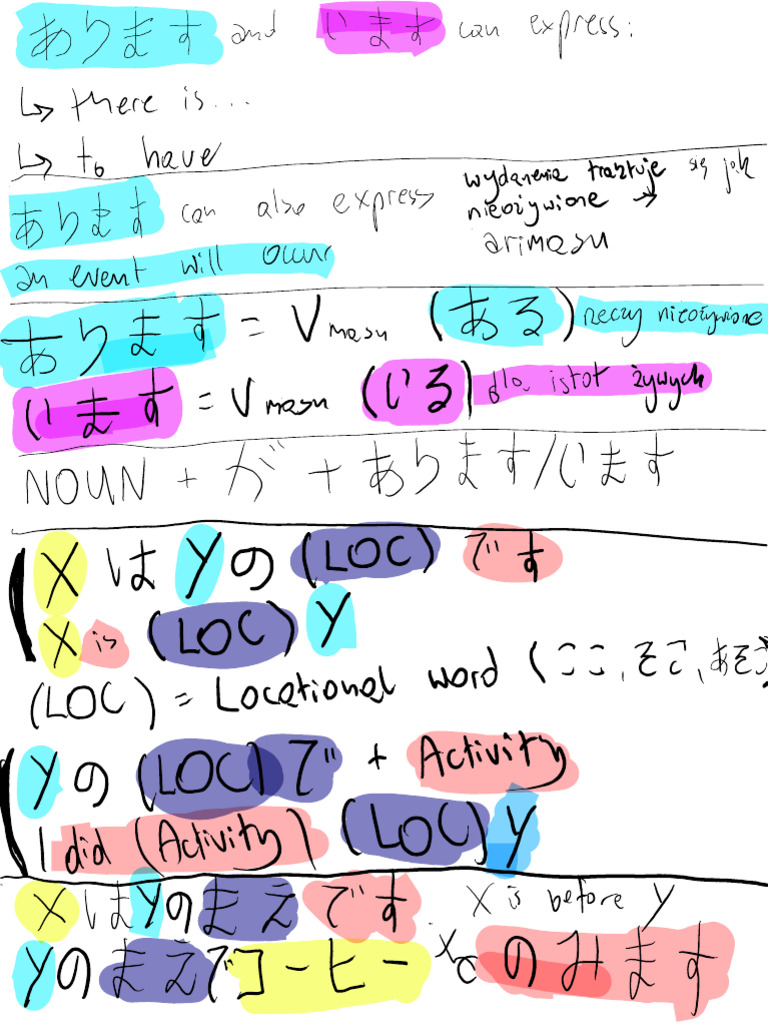 あります and います can express:
↳ there is...
↳ to have
あります can also express
an event will occur
wydarzenia traktuje się jak
nieożywione →
arimasu
あります = Vmasu (ある) rzeczy nieożywione
います = Vmasu (いる) dla istot żywych
NOUN + が + あります/います
X は Y の (LOC) です
X is (LOC) Y
(LOC) = Locational word (ここ、そこ、あそこ
Y の (LOC) で + Activity
I did (Activity) (LOC) Y
X は Y の まえ です X is before Y
Y の まえ で コーヒー を のみます